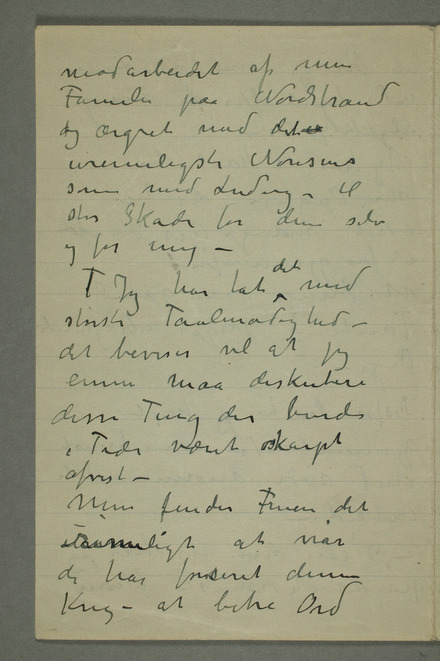 modarbeidet af min
Familie paa Nordstrand
og ærgret med det
urimeligste Nonsens
som med Ludvig – til
stor Skade for dem selv
og for mig –
T Jeg har tat det med
største Taalmodighed –
det beviser vel at jeg
ennu maa diskutere
disse Ting der burde
i Tide været skarpt
afvist –
Men finder Fruen det
rimeligt at når
de har forseret denne
Krig – at bitre Ord